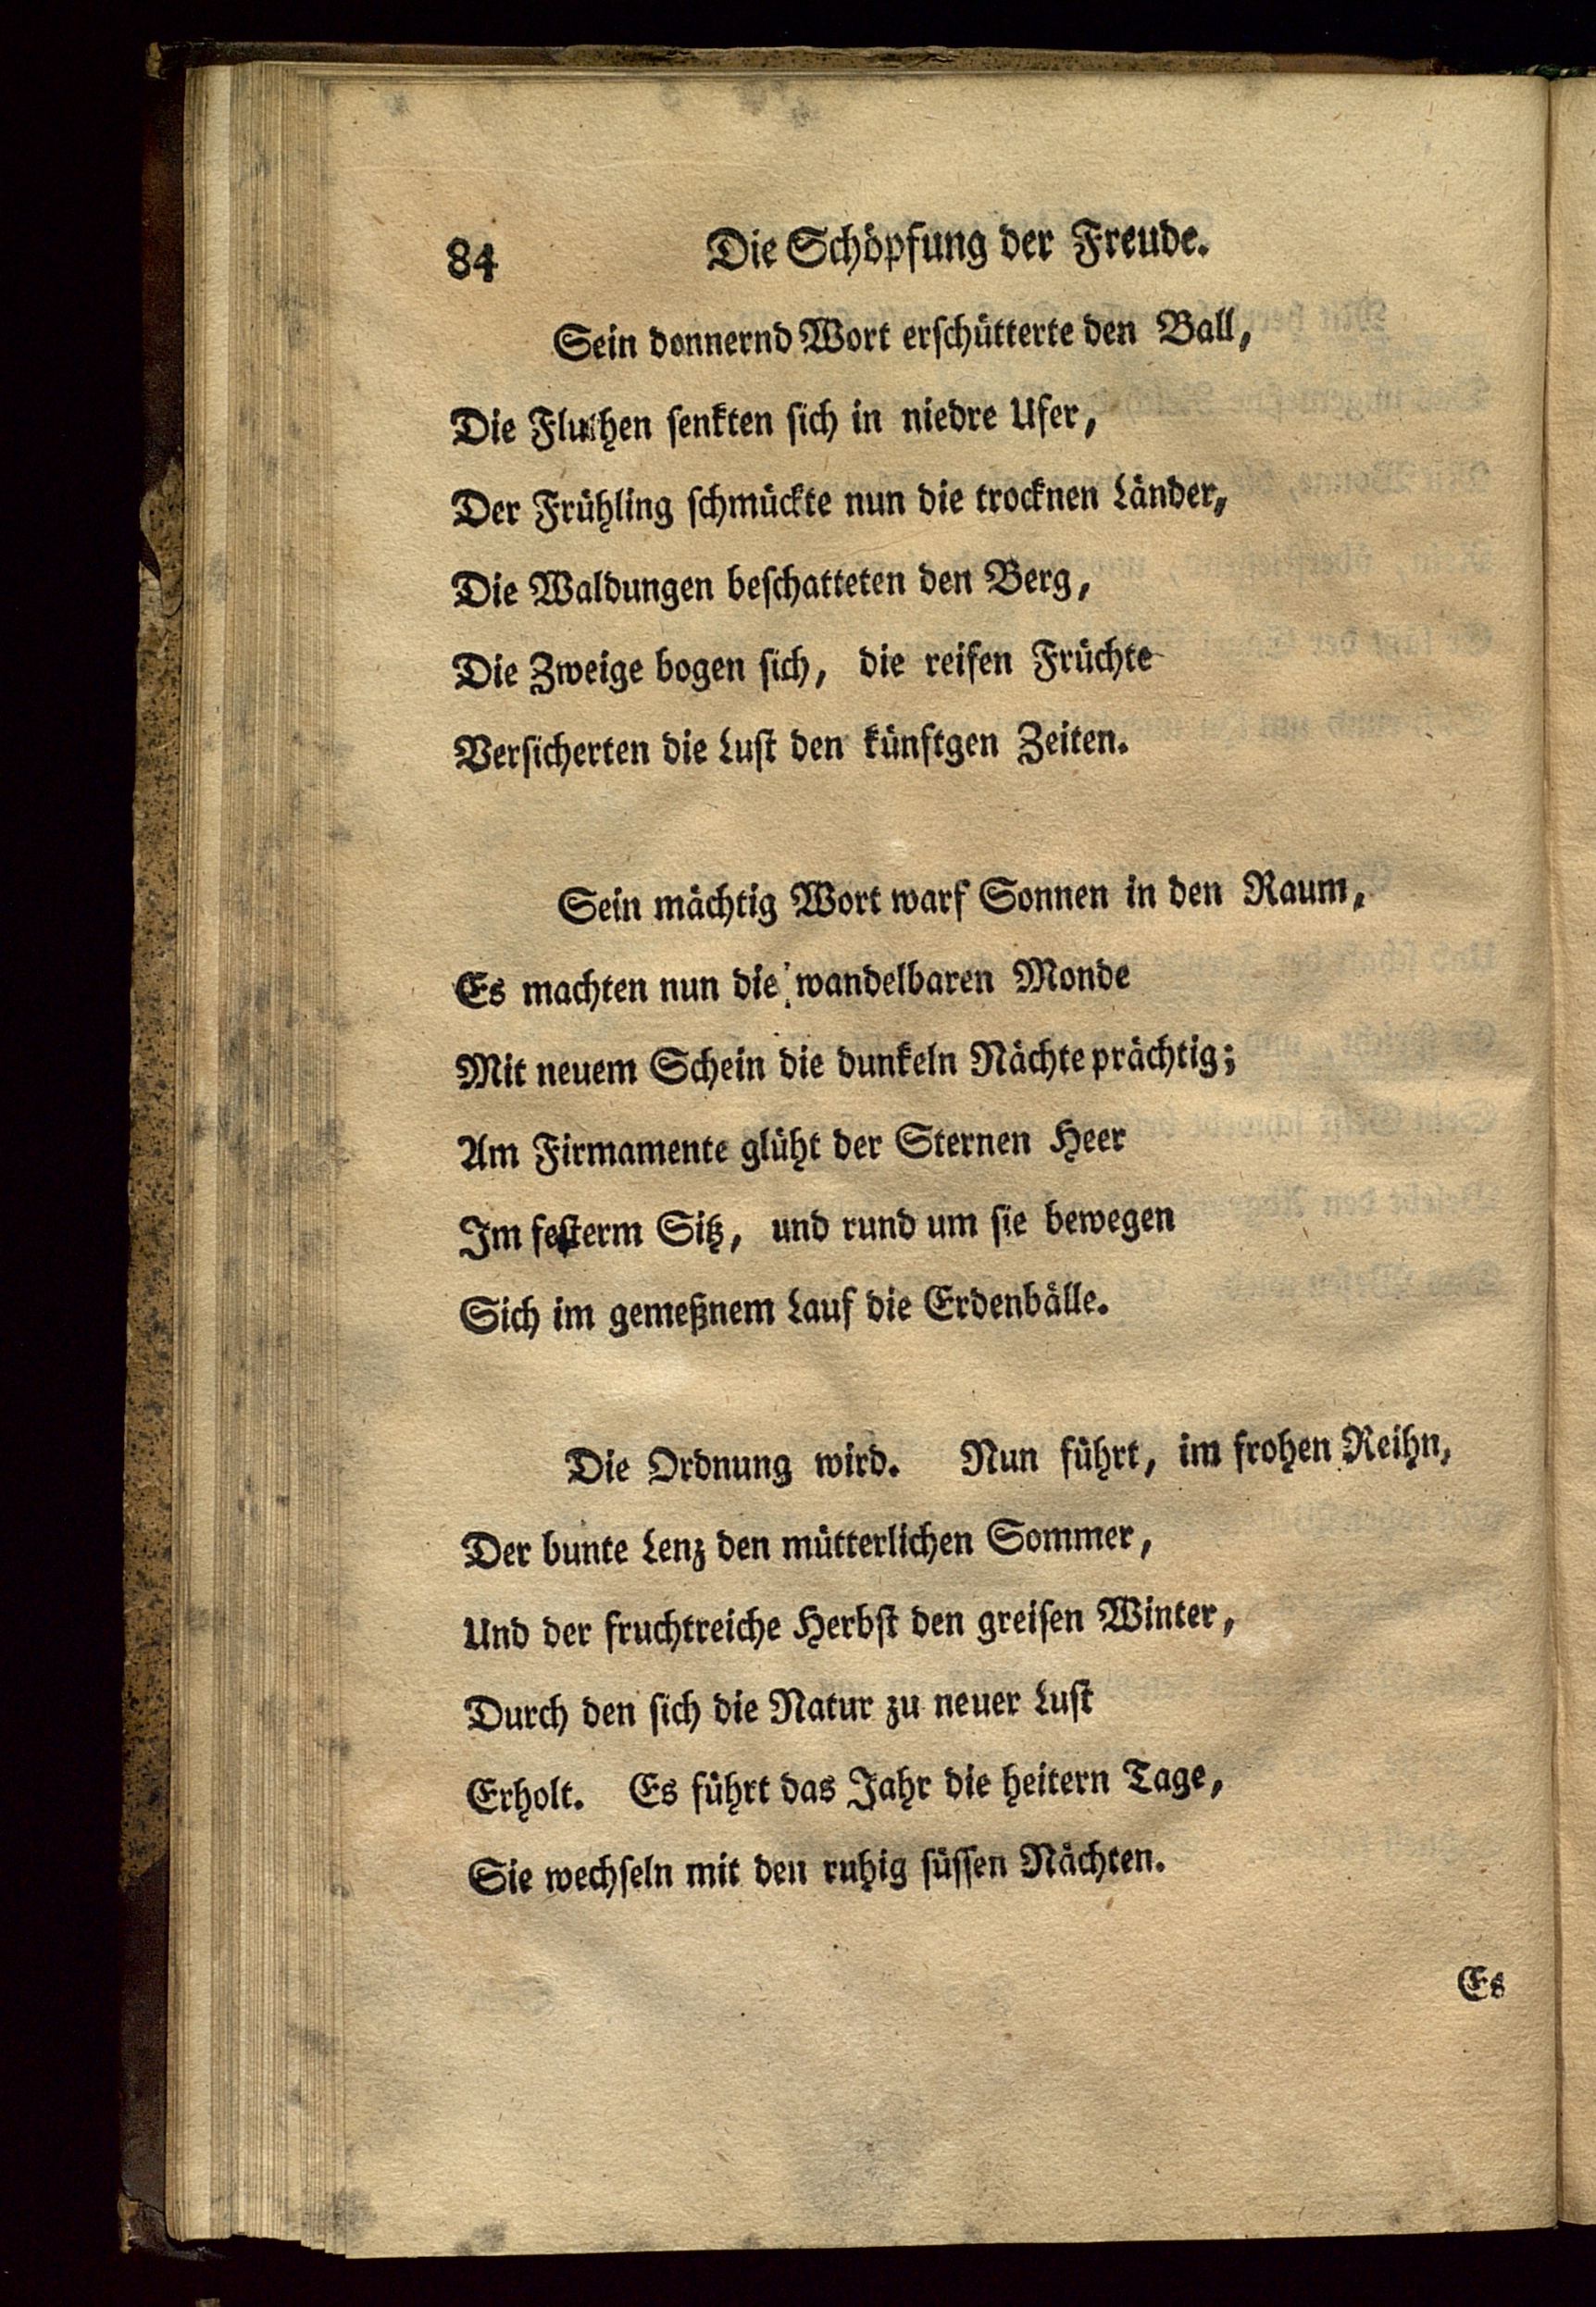 84 Die Schöpfung der Freude.
Sein donnernd Wort erschütterte den Ball,
Die Fluthen senkten sich in niedre Ufer,
Der Frühling schmückte nun die trocknen Länder,
Die Waldungen beschatteten den Berg,
Die Zweige bogen sich, die reifen Früchte
Versicherten die Lust den künftgen Zeiten.
Sein mächtig Wort warf Sonnen in den Raum,
Es machten nun die wandelbaren Monde
Mit neuem Schein die dunkeln Nächte prächtig;
Am Firmamente glüht der Sternen Heer
Im festerm Sitz, und rund um sie bewegen
Sich im gemeßnem Lauf die Erdenbälle.
Die Ordnung wird. Nun führt, im frohen Reihn,
Der bunte Lenz den mütterlichen Sommer,
Und der fruchtreiche Herbst den greisen Winter,
Durch den sich die Natur zu neuer Lust
Erholt. Es führt das Jahr die heitern Tage,
Sie wechseln mit den ruhig süssen Nächten.
Es